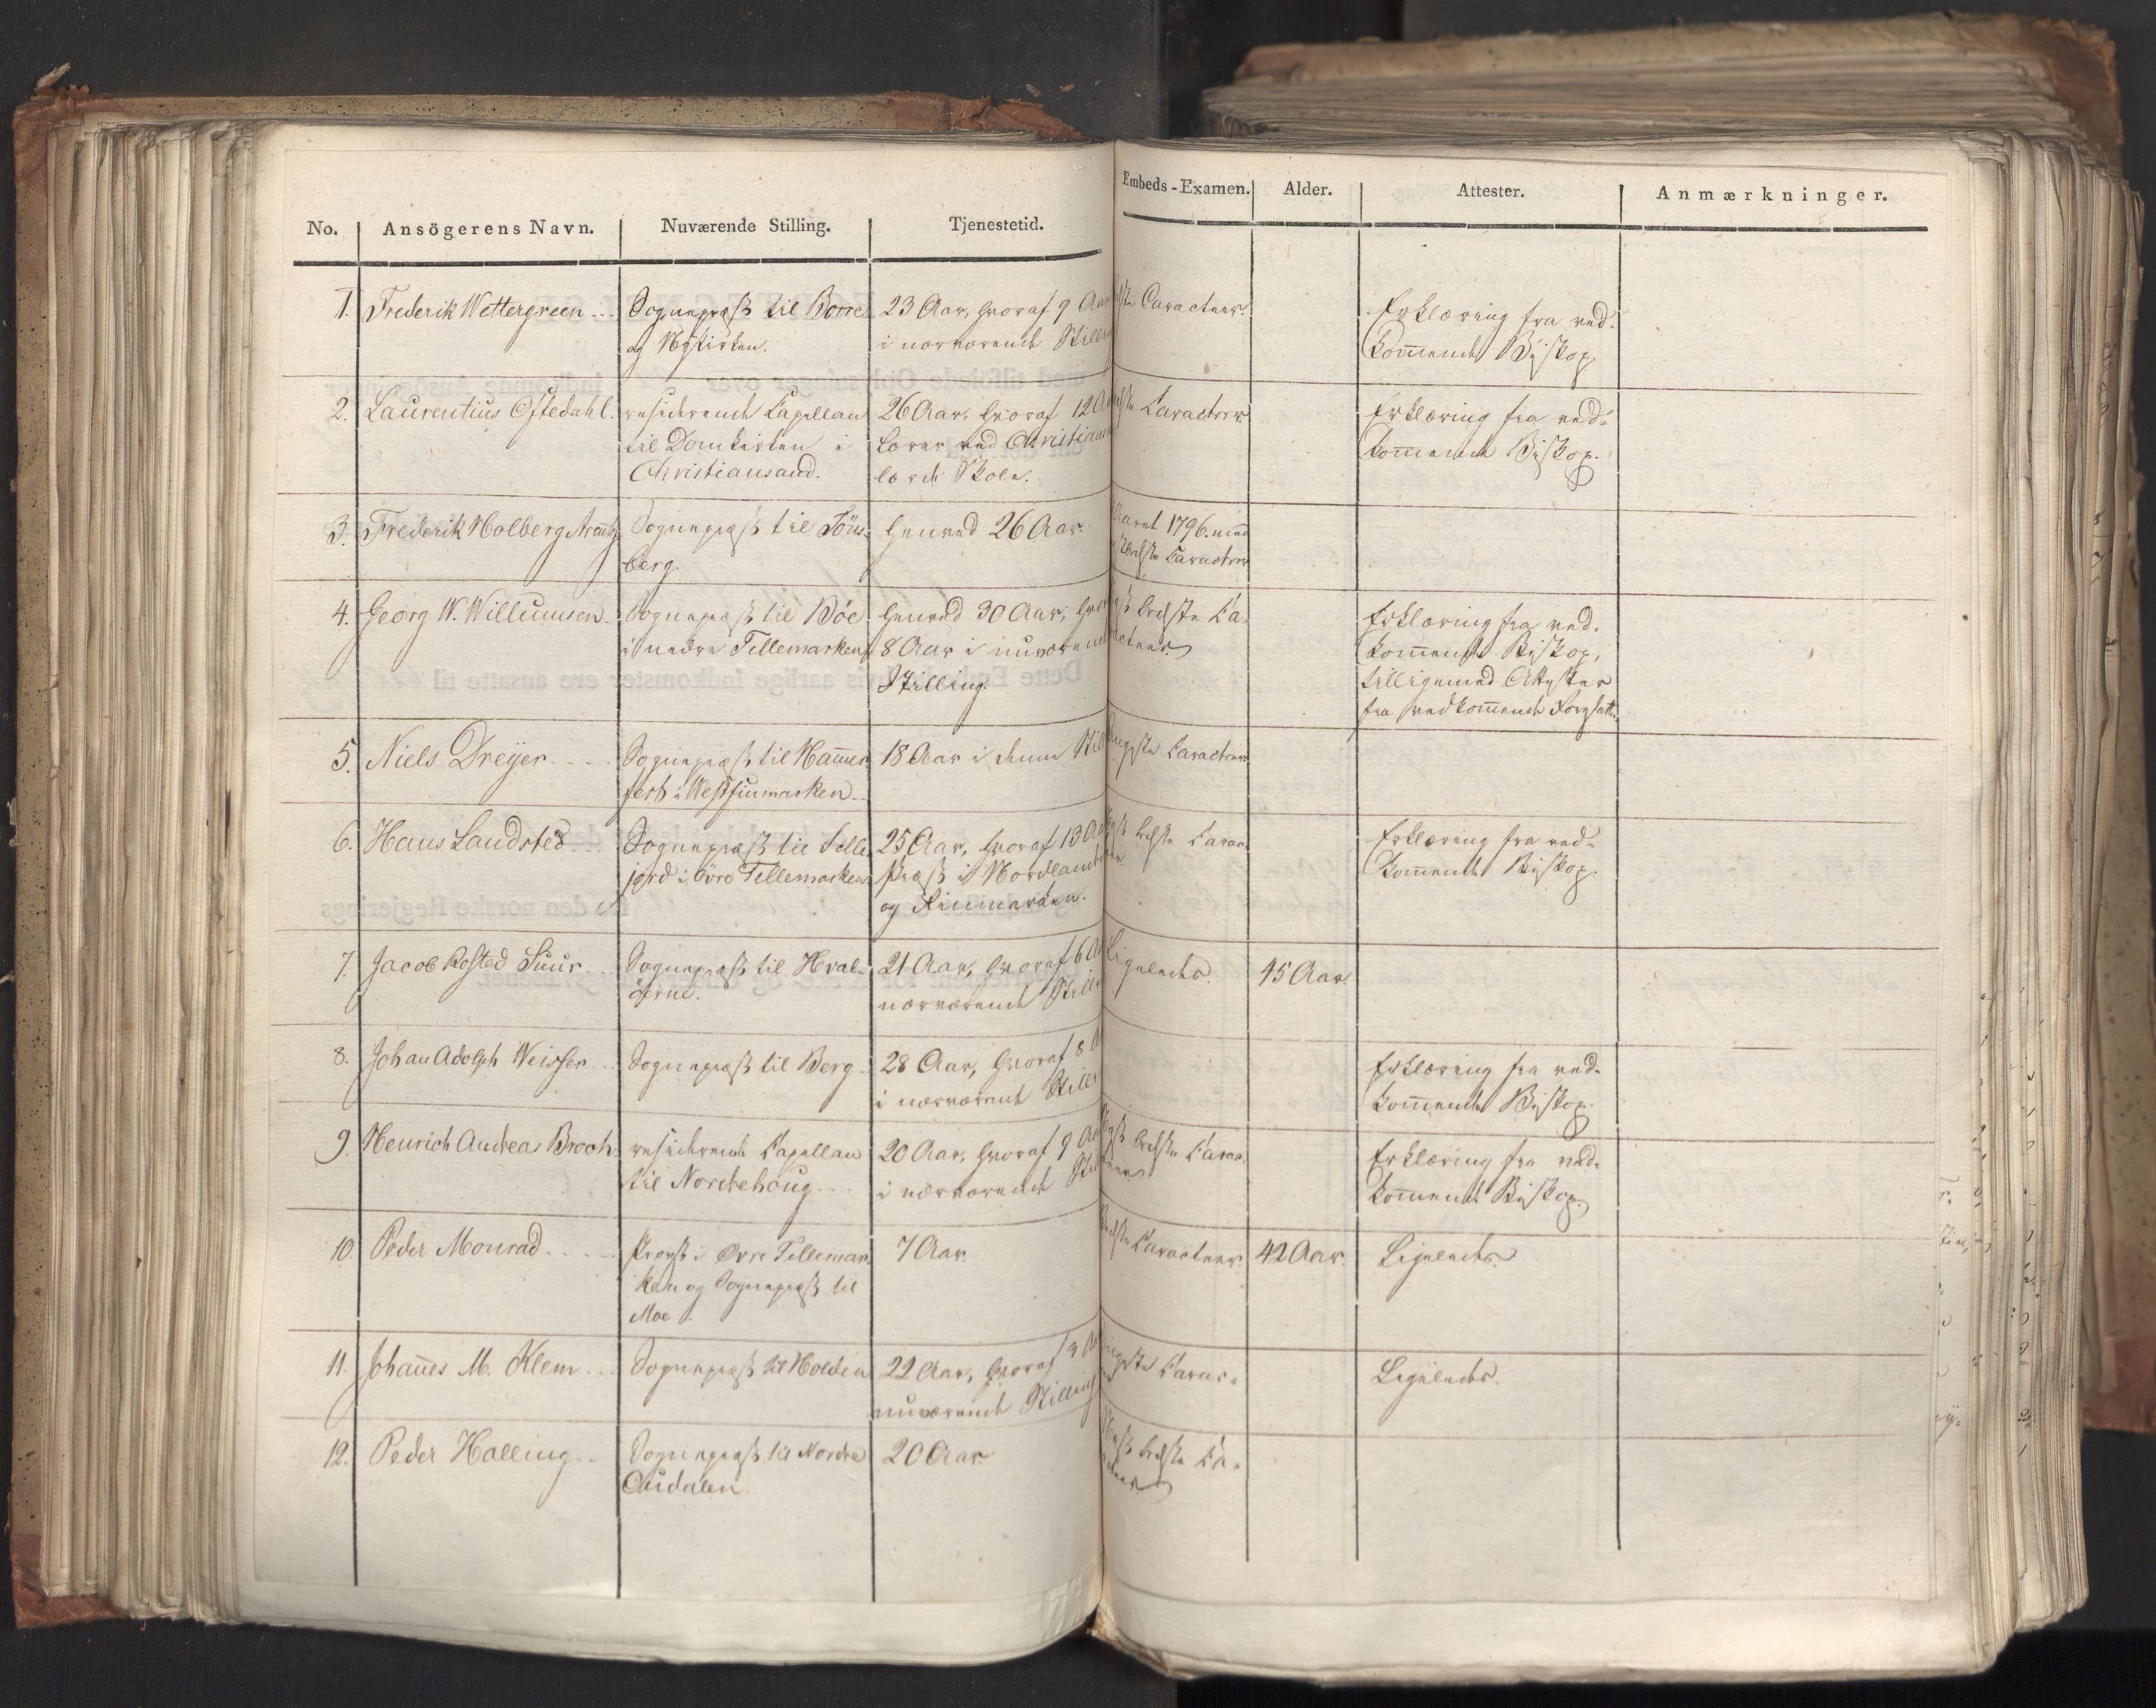 No.
Ansögerens Navn.
Nuværende Stilling.
Tjenestetid.
Embeds-Examen.
Alder.
Attester.
Anmærkninger.
1.
Frederik Wettergreen
Sognepræst til Borre
og Nykirken.
23 Aar, hvoraf 9 Aar
i nærværende Still
Caracteer.
Erklæring fra ved-
kom̄ende Biskop
2.
Laurentius Oftedahl.
residerende Capellan
til Domkirken i
Christiansand.
26 Aar, hvoraf 12 A
Lærer ved Christians
lærde Skole.
Caracteer.
Erklæring fra ved-
kom̄ende Biskop.
3.
Frederik Holberg Arentz
Sognepræst til Töns-
berg.
henved 26 Aar.
Aaret 1796. med
bedste Caracteer
4.
Georg W. Willumsen
Sognepræst til Böe
i nedre Tellemarken
henved 30 Aar, hvor
8 Aar i nuværend
Stilling.
bedste Ca-
racteer.
Erklæring fra ved-
kom̄ende Biskop,
tilligemed Attester
fra vedkom̄ende Foresatte
5.
Niels Dreyer
Sognepræst til Ham̄er-
fest i Westfinmarken
18 Aar i denne Stil
Caracteer
6.
Hans Landsted
Sognepræst til Selle-
jord i övre Tellemarken
25 Aar, hvoraf 13 Aa
Præst i Nordland
og Finmarken.
bedste Carac-
Erklæring fra ved-
kom̄ende Biskop.
7.
Jacob Rosted Suur
Sognepræst til Hval-
öerne.
21 Aar, hvoraf 6 A
nærværende Still
Ligeledes.
45 Aar.
8.
Johan Adolph Weisser
Sognepræst til Berg
28 Aar, hvoraf 8 A
i nærværende Still
Erklæring fra ved-
kom̄ende Biskop.
9.
Henrich Andreas Broch.
residerende Capellan
til Norderhoug
20 Aar, hvoraf 9 Aa
i nærværende Sti
bedste Carac-
teer
Erklæring fra ved-
kom̄ende Biskop.
10.
Peder Monrad
Provst i Övre Tellemar-
ken og Sognepræst til
Moe
7 Aar
Bedste Caracteer.
42 Aar.
Ligeledes.
11.
Johan̄es M. Klem
Sognepræst til Holden
22 Aar, hvoraf 3 A
nuværende Stilling
Carac-
Ligeledes.
12.
Peder Halling
Sognepræst til Nordre
Audalen
20 Aar.
bedste Ca-
racteer